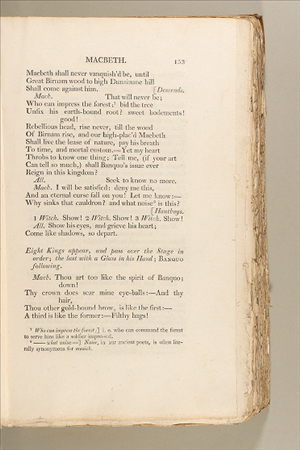 MACBETH. 153
Macbeth shall never vanquish'd be, until
Great Birnam wood to high Dunsinane hill
Shall come against him. [Descends.
Macb. That will never be;
Who can impress the forest;⁵ bid the tree
Unfix his earth-bound root? sweet bodements!
good!
Rebellious head, rise never, till the wood
Of Birnam rise, and our high-plac'd Macbeth
Shall live the lease of nature, pay his breath
To time, and mortal custom.—Yet my heart
Throbs to know one thing; Tell me, (if your art
Can tell so much,) shall Banquo's issue ever
Reign in this kingdom?
All. Seek to know no more.
Macb. I will be satisfied: deny me this,
And an eternal curse fall on you! Let me know:—
Why sinks that cauldron? and what noise⁶ is this?
[Hautboys.
1 Witch. Show! 2 Witch. Show! 3 Witch. Show!
All. Show his eyes, and grieve his heart;
Come like shadows, so depart.
Eight Kings appear, and pass over the Stage in
order; the last with a Glass in his Hand; BANQUO
following.
Macb. Thou art too like the spirit of Banquo;
down!
Thy crown does sear mine eye-balls:—And thy
hair,
Thou other gold-bound brow, is like the first:—
A third is like the former:—Filthy hags!
⁵ Who can impress the forest;] i. e. who can command the forest
to serve him like a soldier impressed.
⁶ —— what noise—] Noise, in our ancient poets, is often lite-
rally synonymous for musick.